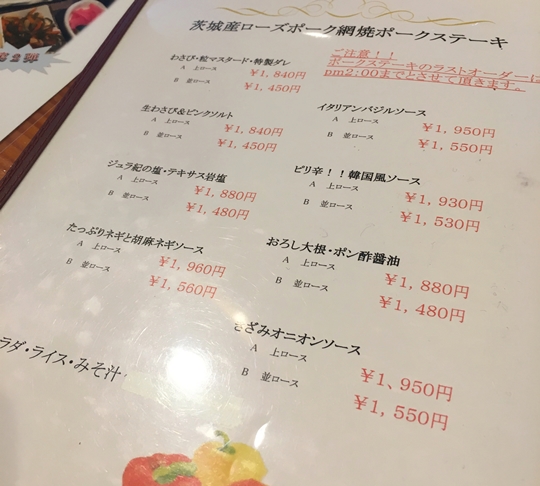 茨城産ローズポーク網焼ポークステーキ
わさび・粒マスタード・特製ダレ
A 上ロース ￥1,840円
B 並ロース ￥1,450円
ご注意！！
ポークステーキのラストオーダーは
pm2:00までとさせて頂きます。
生わさび&ピンクソルト
A 上ロース ￥1,840円
B 並ロース ￥1,450円
イタリアンバジルソース
A 上ロース ￥1,950円
B 並ロース ￥1,550円
ジュラ紀の塩・テキサス岩塩
A 上ロース ￥1,880円
B 並ロース ￥1,480円
ピリ辛！！韓国風ソース
A 上ロース ￥1,930円
B 並ロース ￥1,530円
たっぷりネギと胡麻ネギソース
A 上ロース ￥1,960円
B 並ロース ￥1,560円
おろし大根・ポン酢醤油
A 上ロース ￥1,880円
B 並ロース ￥1,480円
きざみオニオンソース
A 上ロース ￥1,950円
B 並ロース ￥1,550円
ラダ・ライス・みそ汁